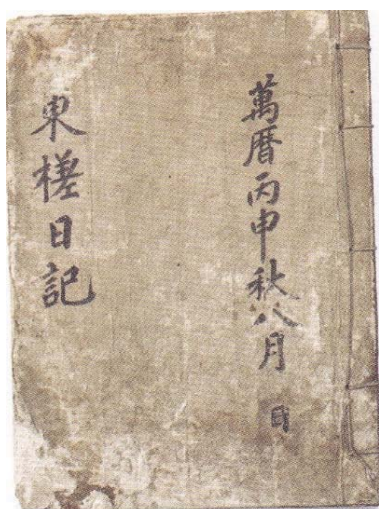 萬曆丙申秋八月 日
東槎日記